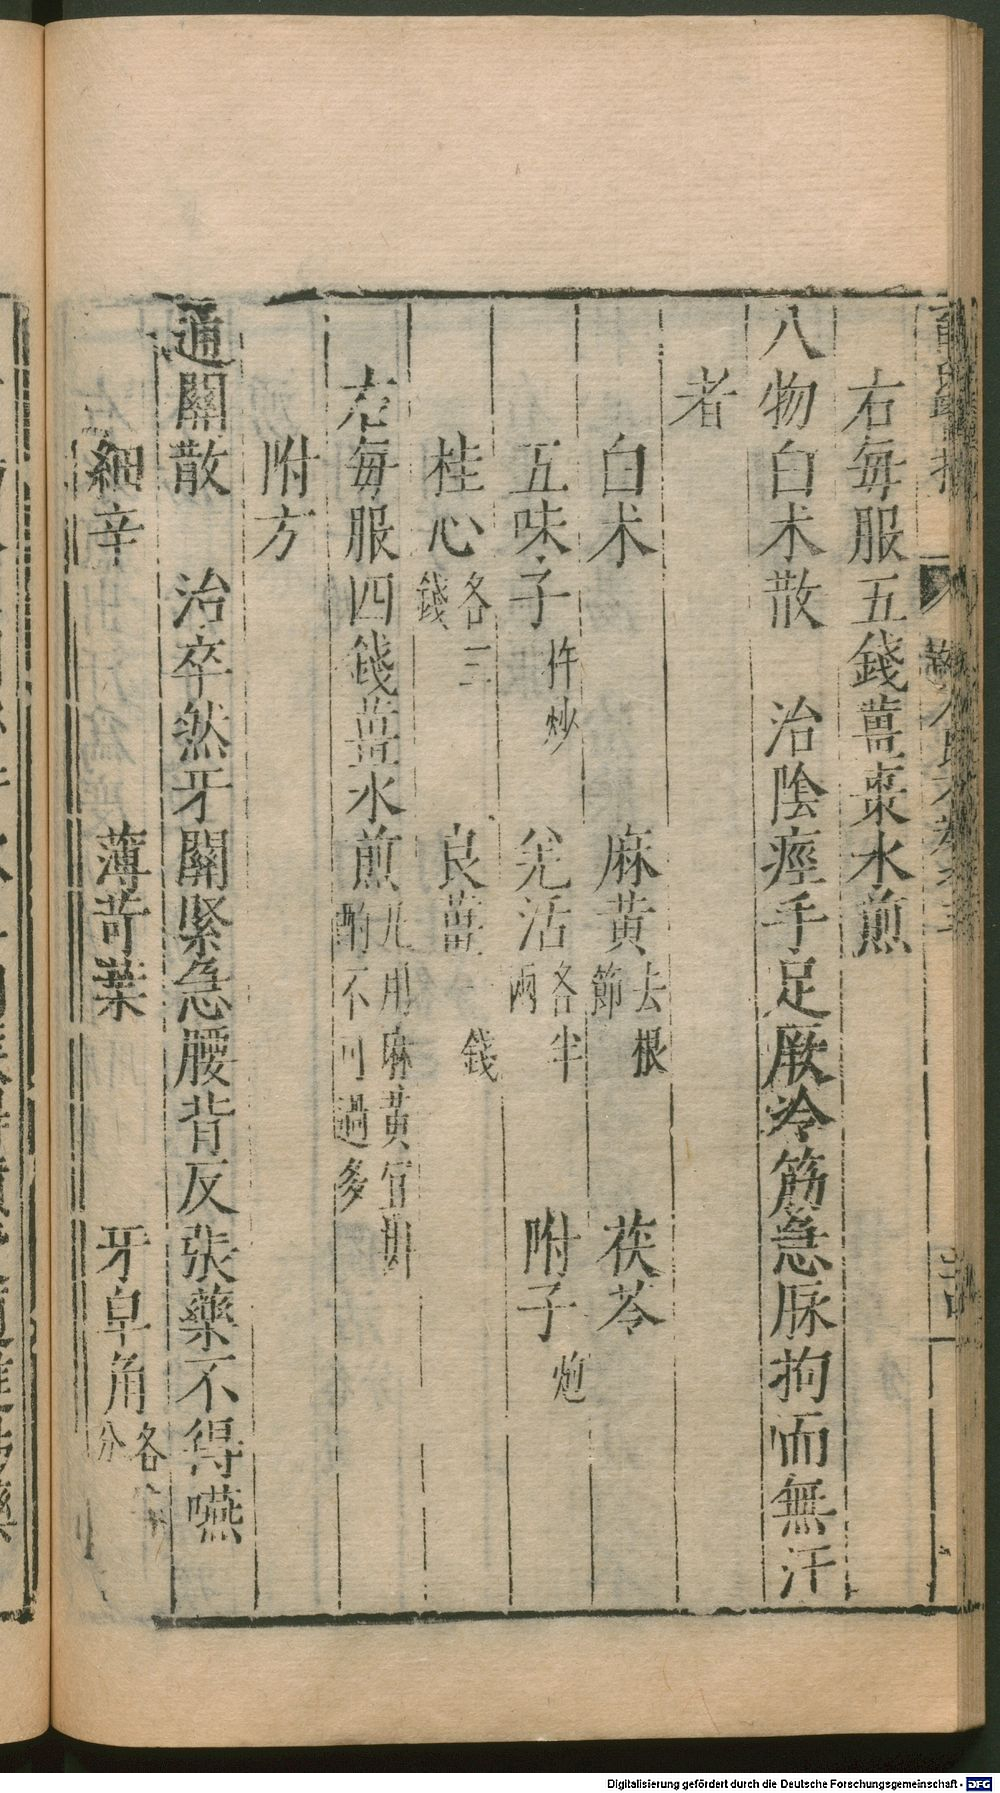 右每服五錢薑棗水煎
八物白术散　治陰痙手足厥冷筋急脉拘而無汗
者
白术　麻黃去根節　茯苓
五味子杵炒　羌活各半兩　附子炮
桂心各三錢　良薑一錢
右每服四錢薑水煎凡用麻黃宜斟酌不可過多
附方
通關散　治卒然牙關緊急腰背反張藥不得嚥
細辛　薄苛葉　牙皁角各等分
Digitalisierung gefördert durch die Deutsche Forschungsgemeinschaft - DFG